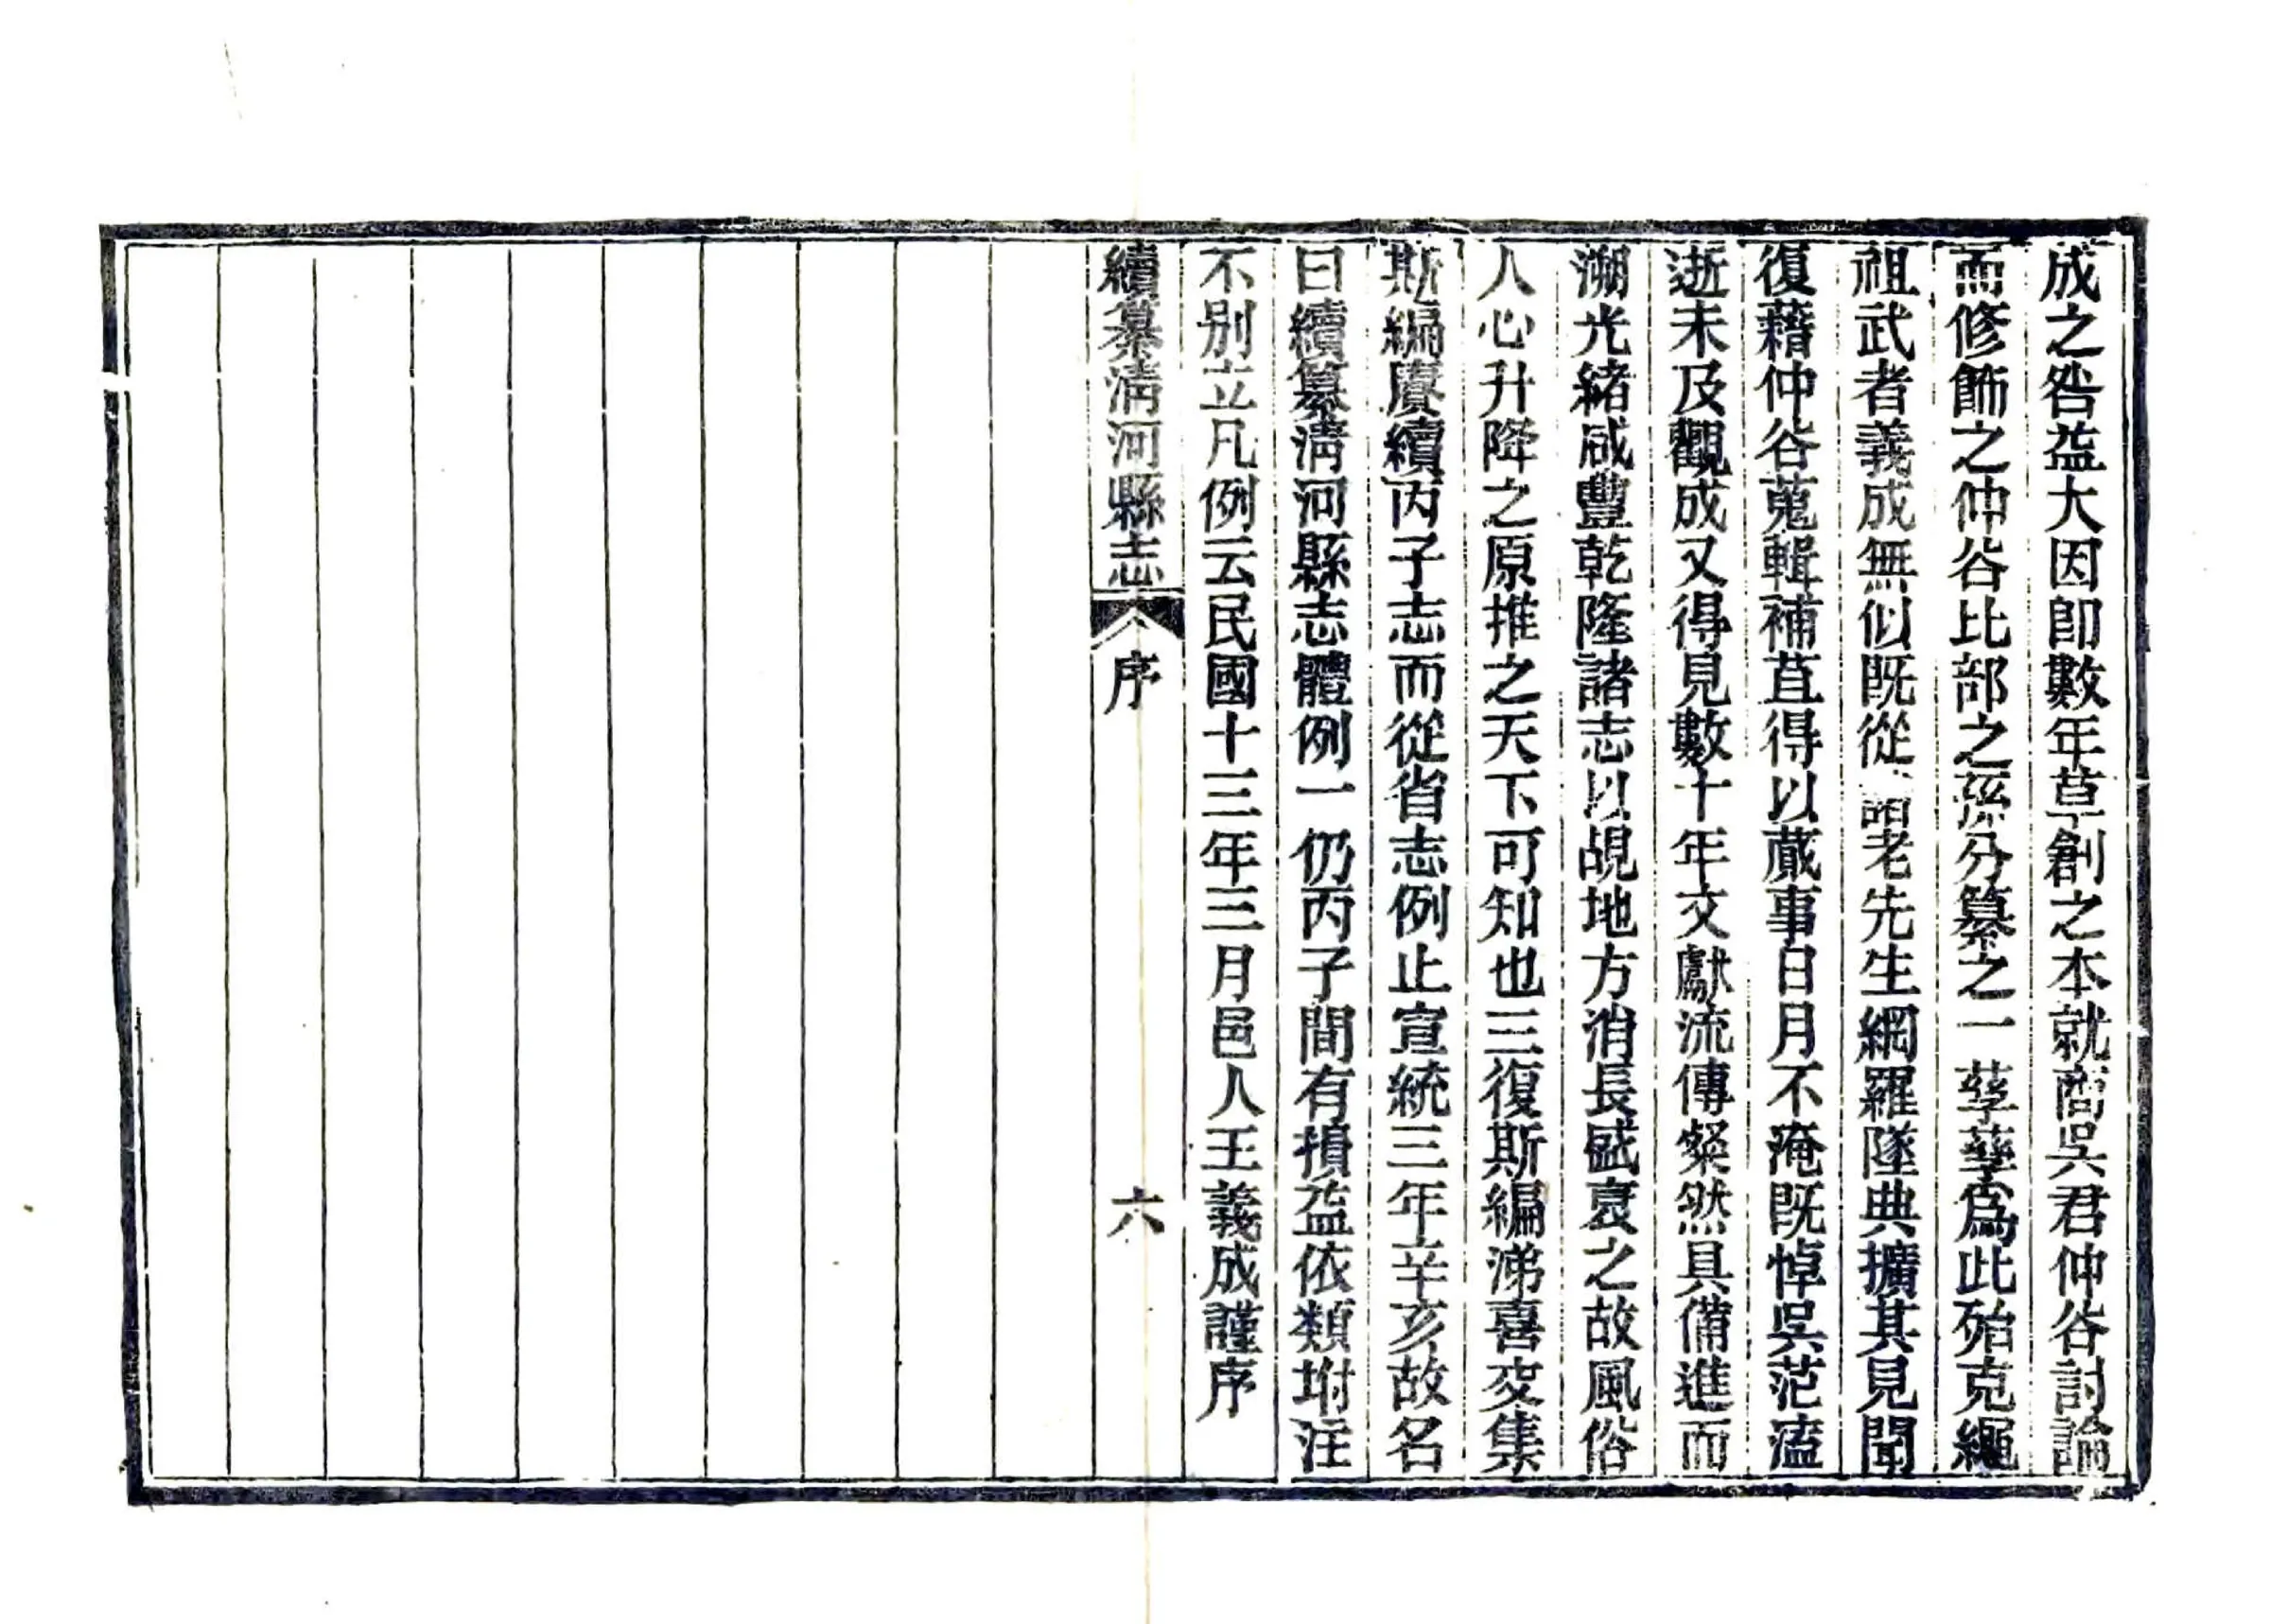 成之咎益大因卽數年草創之本就商吳君仲谷討論
而修飾之仲谷比部之孫分纂之一孳孳爲此殆克繩
祖武者義成無似既從諸老先生網羅墜典擴其見聞
復藉仲谷蒐輯補苴得以蕆事日月不淹既悼吳范溘
逝未及觀成又得見數十年文獻流傳粲然具備進而
溯光緒咸豐乾隆諸志以覘地方消長盛衰之故風俗
人心升降之原推之天下可知也三復斯編涕喜交集
斯編賡續丙子志而從省志例止宣統三年辛亥故名
曰續纂淸河縣志體例一仍丙子間有損益依類坿注
不别立凡例云民國十三年三月邑人王義成謹序
續纂淸河縣志
序
六